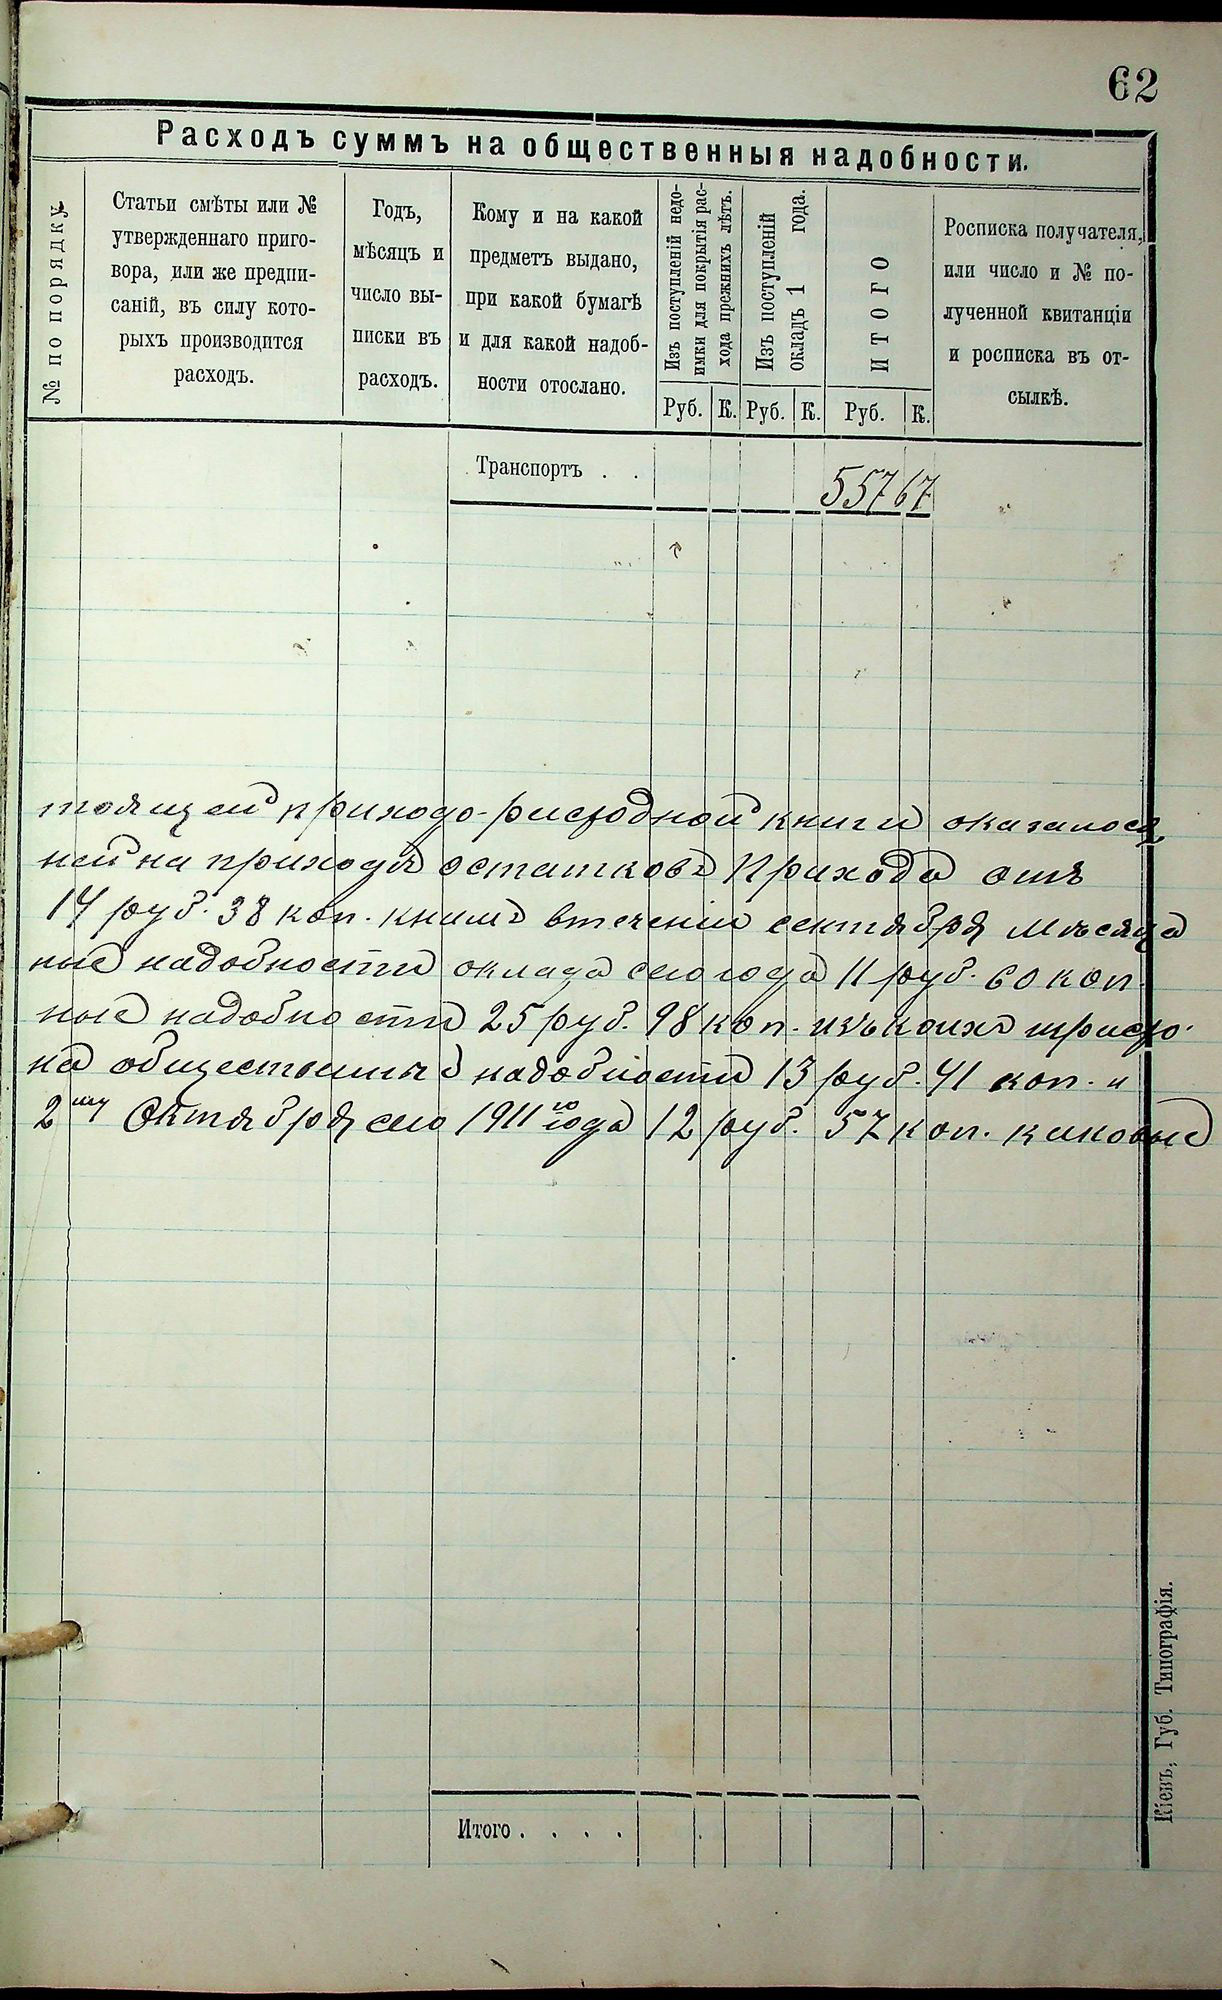 62
Расходъ суммъ на общественныя надобности.
№ по порядку
Статьи смѣты или №
утвержденнаго приго-
вора, или же предпи-
саній, въ силу кото-
рыхъ производится
расходъ.
Годъ,
мѣсяцъ и
число вы-
писки въ
расходъ.
Кому и на какой
предметъ выдано,
при какой бумагѣ
и для какой надоб-
ности отослано.
Изъ поступленій недо-
имки для покрытія рас-
хода прежнихъ лѣтъ.
Руб. К.
Изъ поступленій
окладъ 1 года.
Руб. К.
ИТОГО
Руб. К.
Росписка получателя,
или число и № по-
лученной квитанціи
и росписка въ от-
сылкѣ.
Транспортъ . . 557 67
тоящей приходо-расходной книги оказалось,
ней на приходѣ остатковъ Прихода отъ
14 руб. 38 коп. книмъ втеченіи сентября мѣсяца
ные надобности оклада сего года 11 руб. 60 коп.
ные надобности 25 руб. 98 коп. изъ коихъ
на общественныя надобности 13 руб. 41 коп. и
2му Октября сего 1911го года 12 руб. 57 коп. каковые
Итого . . . .
Кіевъ, Губ. Типографія.